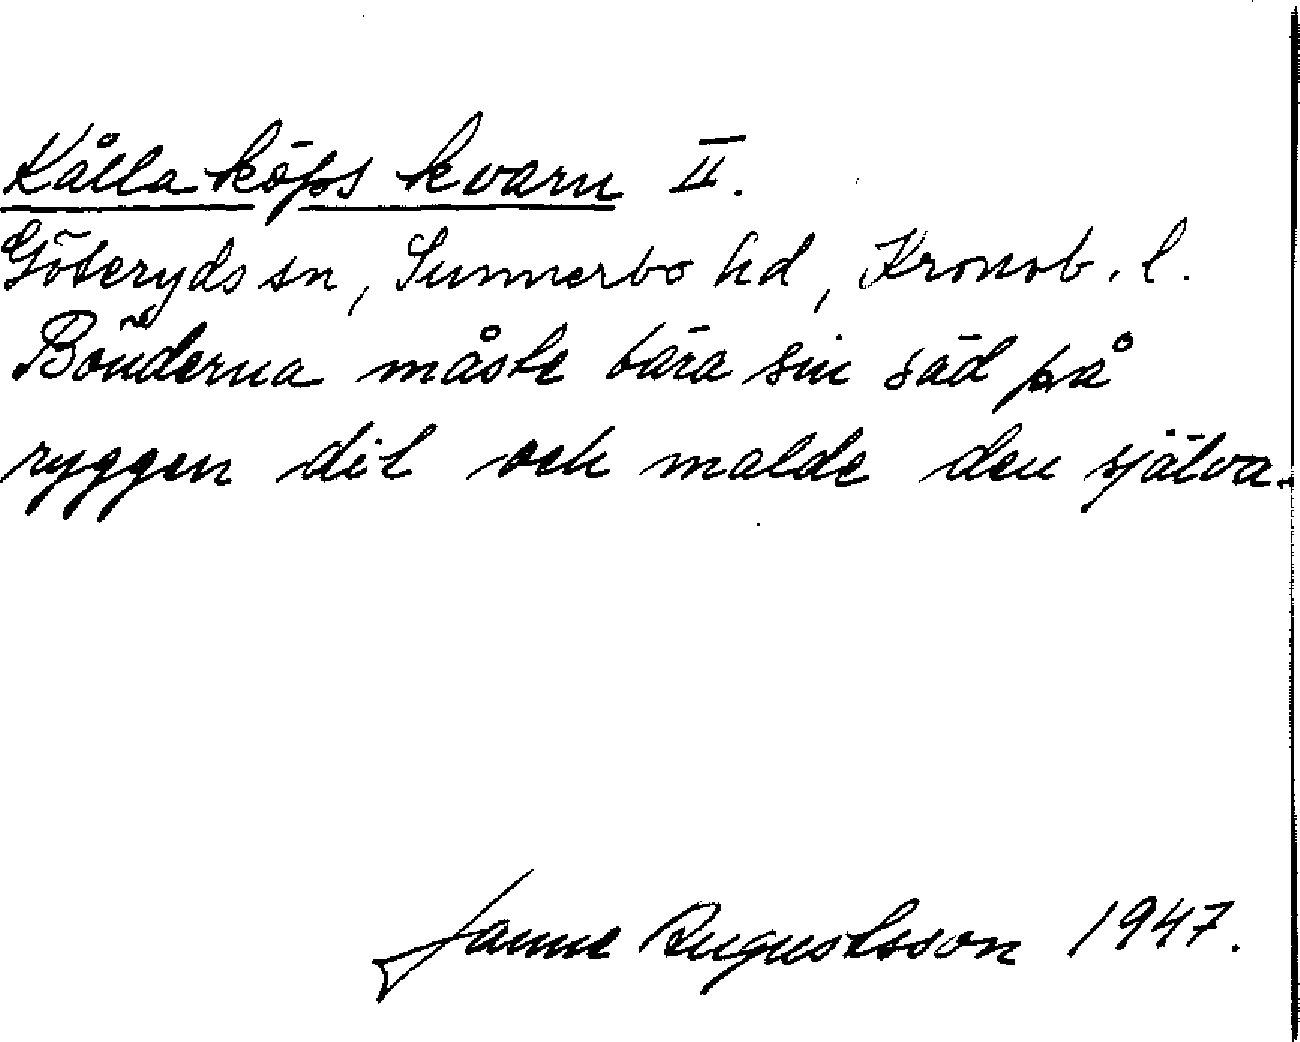 Kållaköps kvarn II.
Göteryds sn, Sunnerbo hd, Kronob. l.
Bönderna måste bära sin säd på
ryggen dit och malde den själva.
Janne Augustsson 1947.